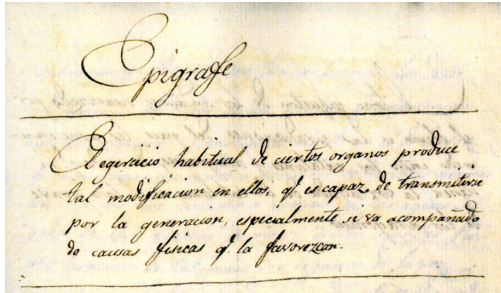 Epigrafe
El egercicio habitual de ciertos organos produce
tal modificacion en ellos, q.e es capaz de transmitirse
por la generacion, especialmente si va acompañado
de causas fisicas q.e la favorezcan.